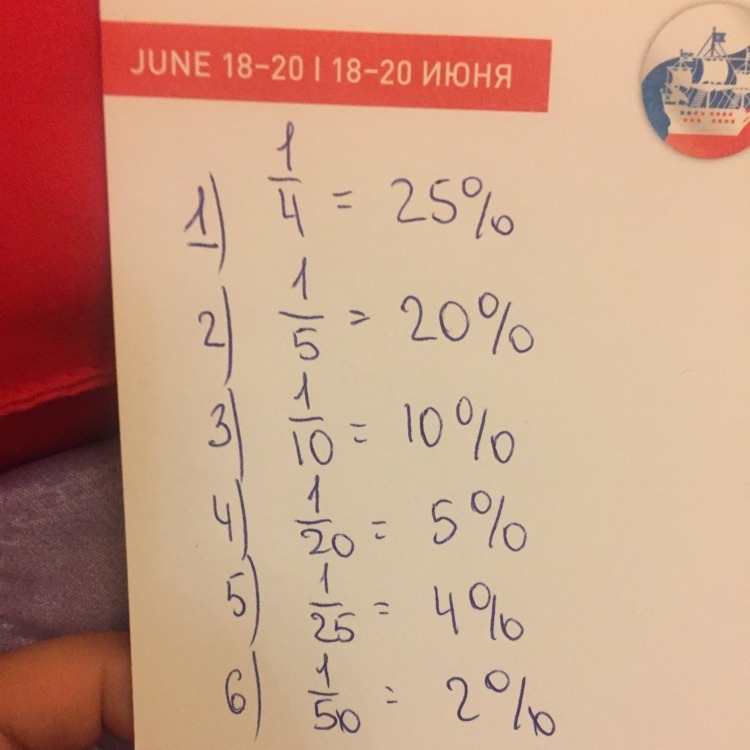 JUNE 18-20 | 18-20 ИЮНЯ
1) 1/4 = 25%
2) 1/5 = 20%
3) 1/10 = 10%
4) 1/20 = 5%
5) 1/25 = 4%
6) 1/50 = 2%